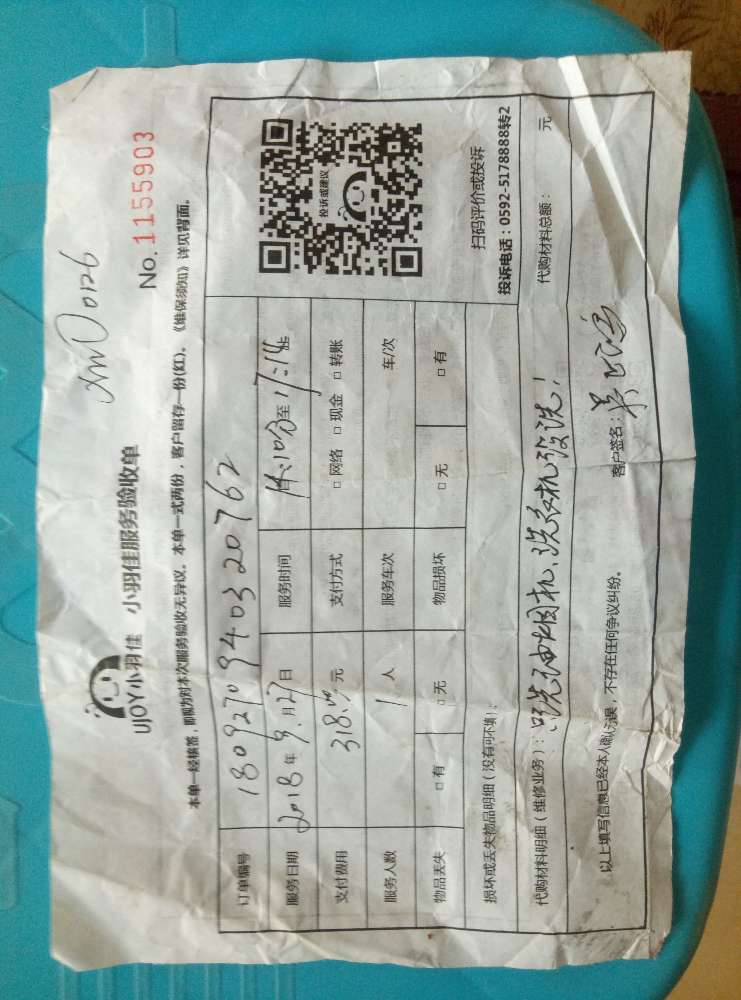 XMD0126
UJOY小羽佳 小羽佳服务验收单
No.1155903
本单一经核签，即视为对本次服务验收无异议。本单一式两份，客户留存一份(红)。《维保须知》详见背面。
订单编号 1809270940320762
服务日期 2018年9月27日 服务时间 14:10分至17:14
支付费用 318.00元 支付方式 □网络 □现金 □转账
服务人数 1人 服务车次 车/次
物品丢失 □有 □无 物品损坏 □无 □有
投诉或建议
扫码评价或投诉
投诉电话：0592-5178888转2
损坏或丢失物品明细（没有可不填）：
代购材料明细（维修业务）： 清洗油烟机、洗衣机 代购材料总额： 元
以上填写信息已经本人确认无误，不存在任何争议纠纷。 客户签名：